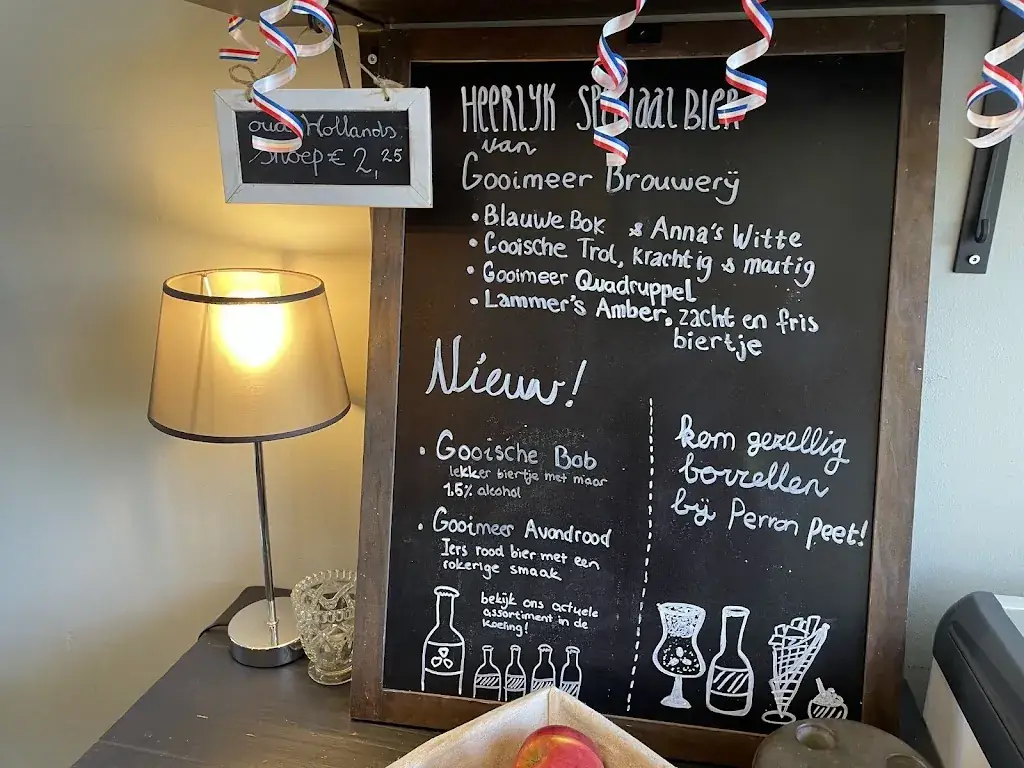 oud Hollands
snoep € 2,25
HEERLYK SPECIAAL BIER
van
Gooimeer Brouwerÿ
• Blauwe Bok & Anna's Witte
• Gooische Trol, krachtig & moutig
• Gooimeer Quadruppel
• Lammer's Amber, zacht en fris
biertje
Nieuw!
• Gooische Bob
lekker biertje met maar
1.5% alcohol
• Gooimeer Avondrood
Iers rood bier met een
rokerige smaak
bekijk ons actuele
assortiment in de
koeling!
kom gezellig
borrellen
bij Perron Peet!